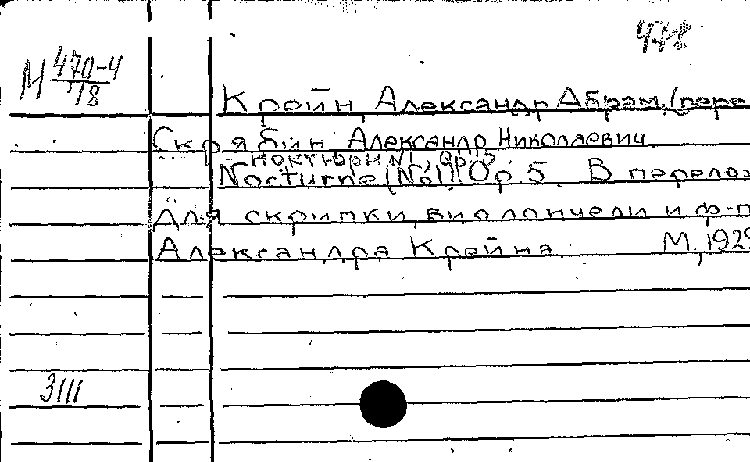 478
М 470-4
18
Крейн, Александр Абрам. (пере
Скрябин Александр Николаевич.
Ноктюрн №1, Op. 5
Nocturne (№1). Op. 5. В перелож
для скрипки, виолончели и ф-п
Александра Крейна. М., 1929
3111